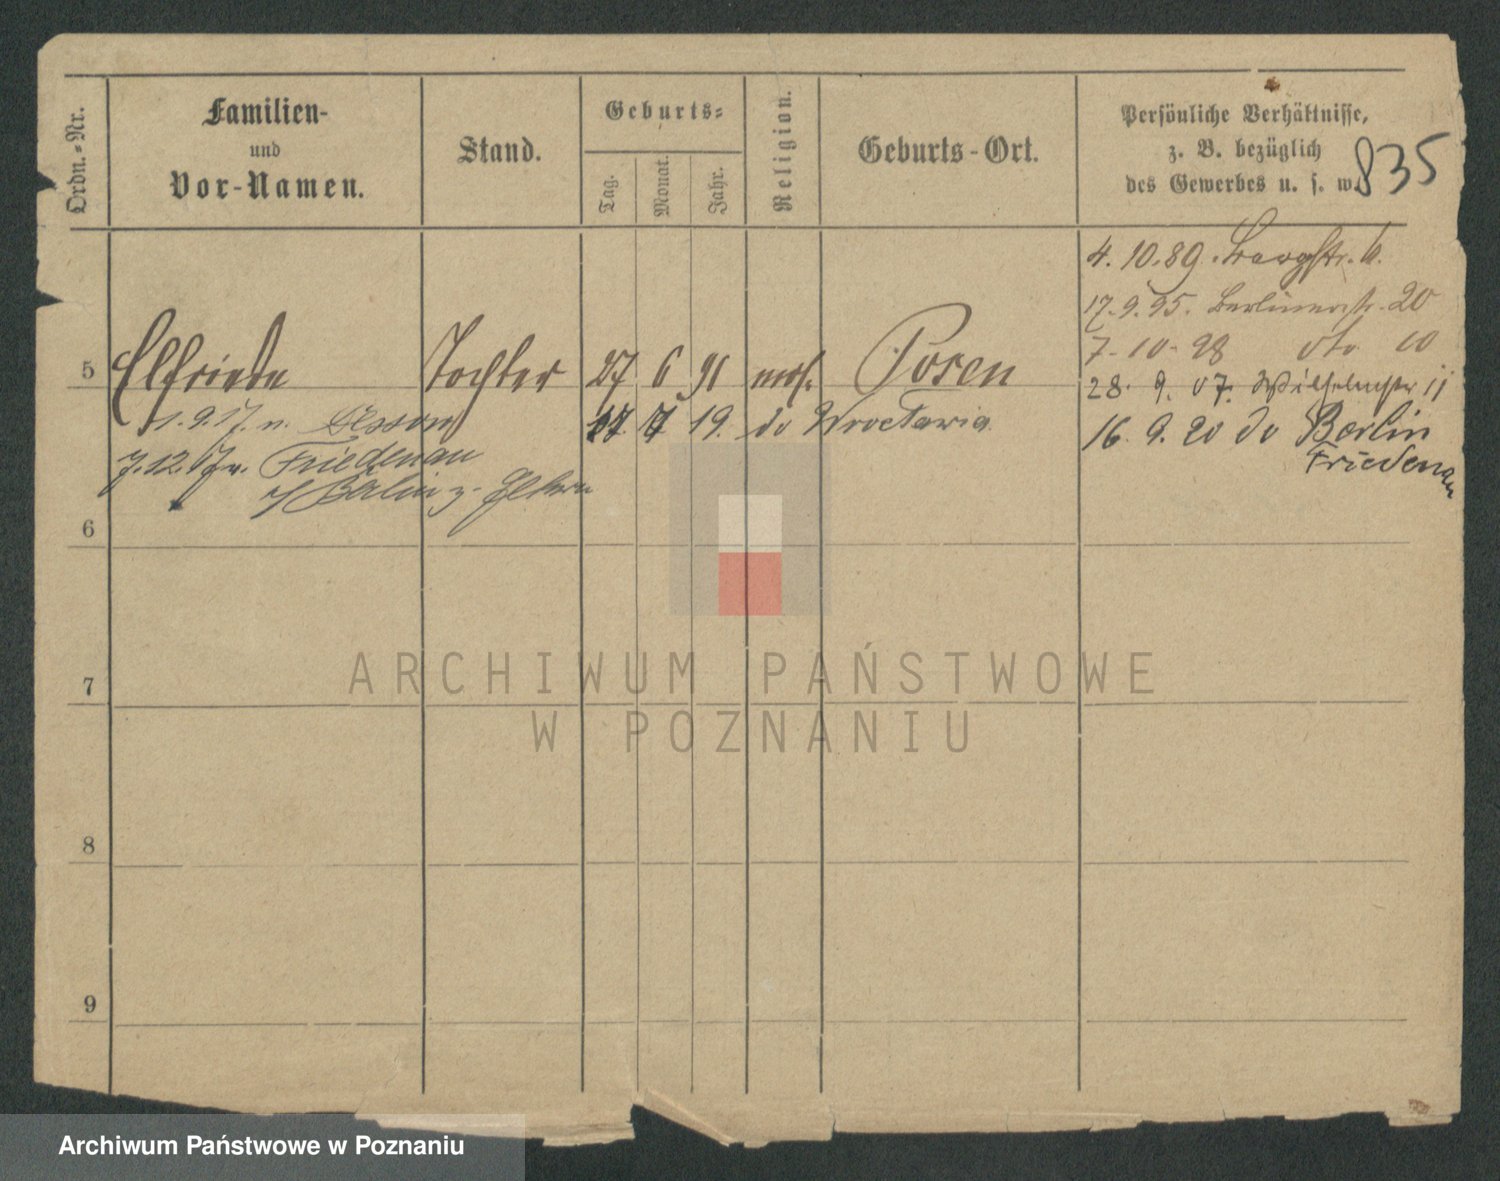 Ordn.-Nr.
Familien-
und
Vor-Namen.
Stand.
Geburts-
Tag.
Monat.
Jahr.
Religion.
Geburts-Ort.
Persönliche Verhältnisse,
z. B. bezüglich
des Gewerbes u. s. w.
835
4. 10. 89.
17. 9. 95. Berlinerstr. 20
7. 10. 98 dto 10
28. 9. 07. Wilhelmstr 11
5 Elfriede Tochter 27 6 91 mos. Posen
1. 9. 17. n. 17. 7 19. do Wrocławia
16. 9. 20 do Berlin
Friedenau
7. 12. 17 v. Friedenau
b/Berlin z. Eltern
6
7
8
9
ARCHIWUM PAŃSTWOWE
W POZNANIU
Archiwum Państwowe w Poznaniu